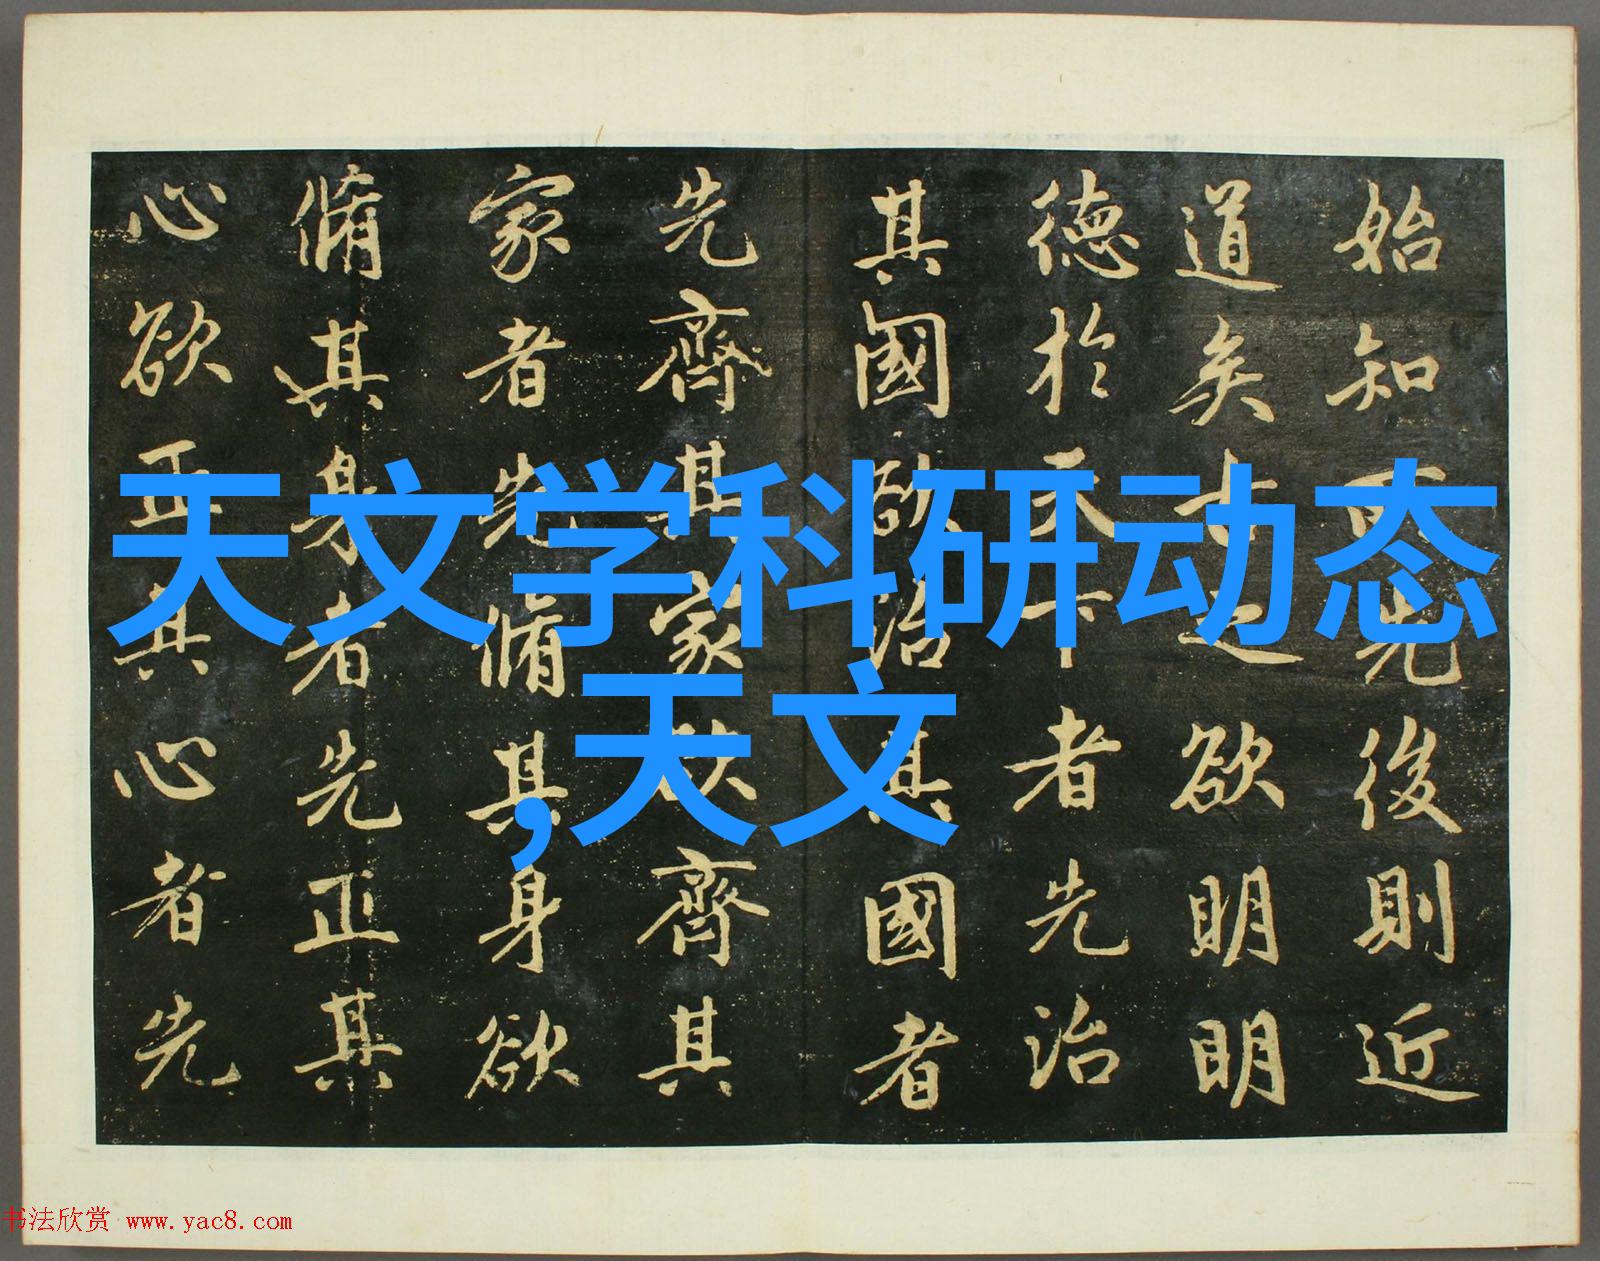 天文学科研动态
,天文
始知所先後則近
道矣古之欲明明
德於天下者先治
其國欲治其國者
先齊其家欲齊其
家者先脩其身欲
脩其身者先正其
心欲正其心者先
书法欣赏 www.yac8.com